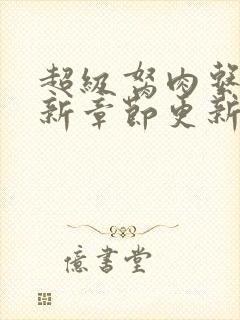 超級驽肉系
新章節更新
億書堂